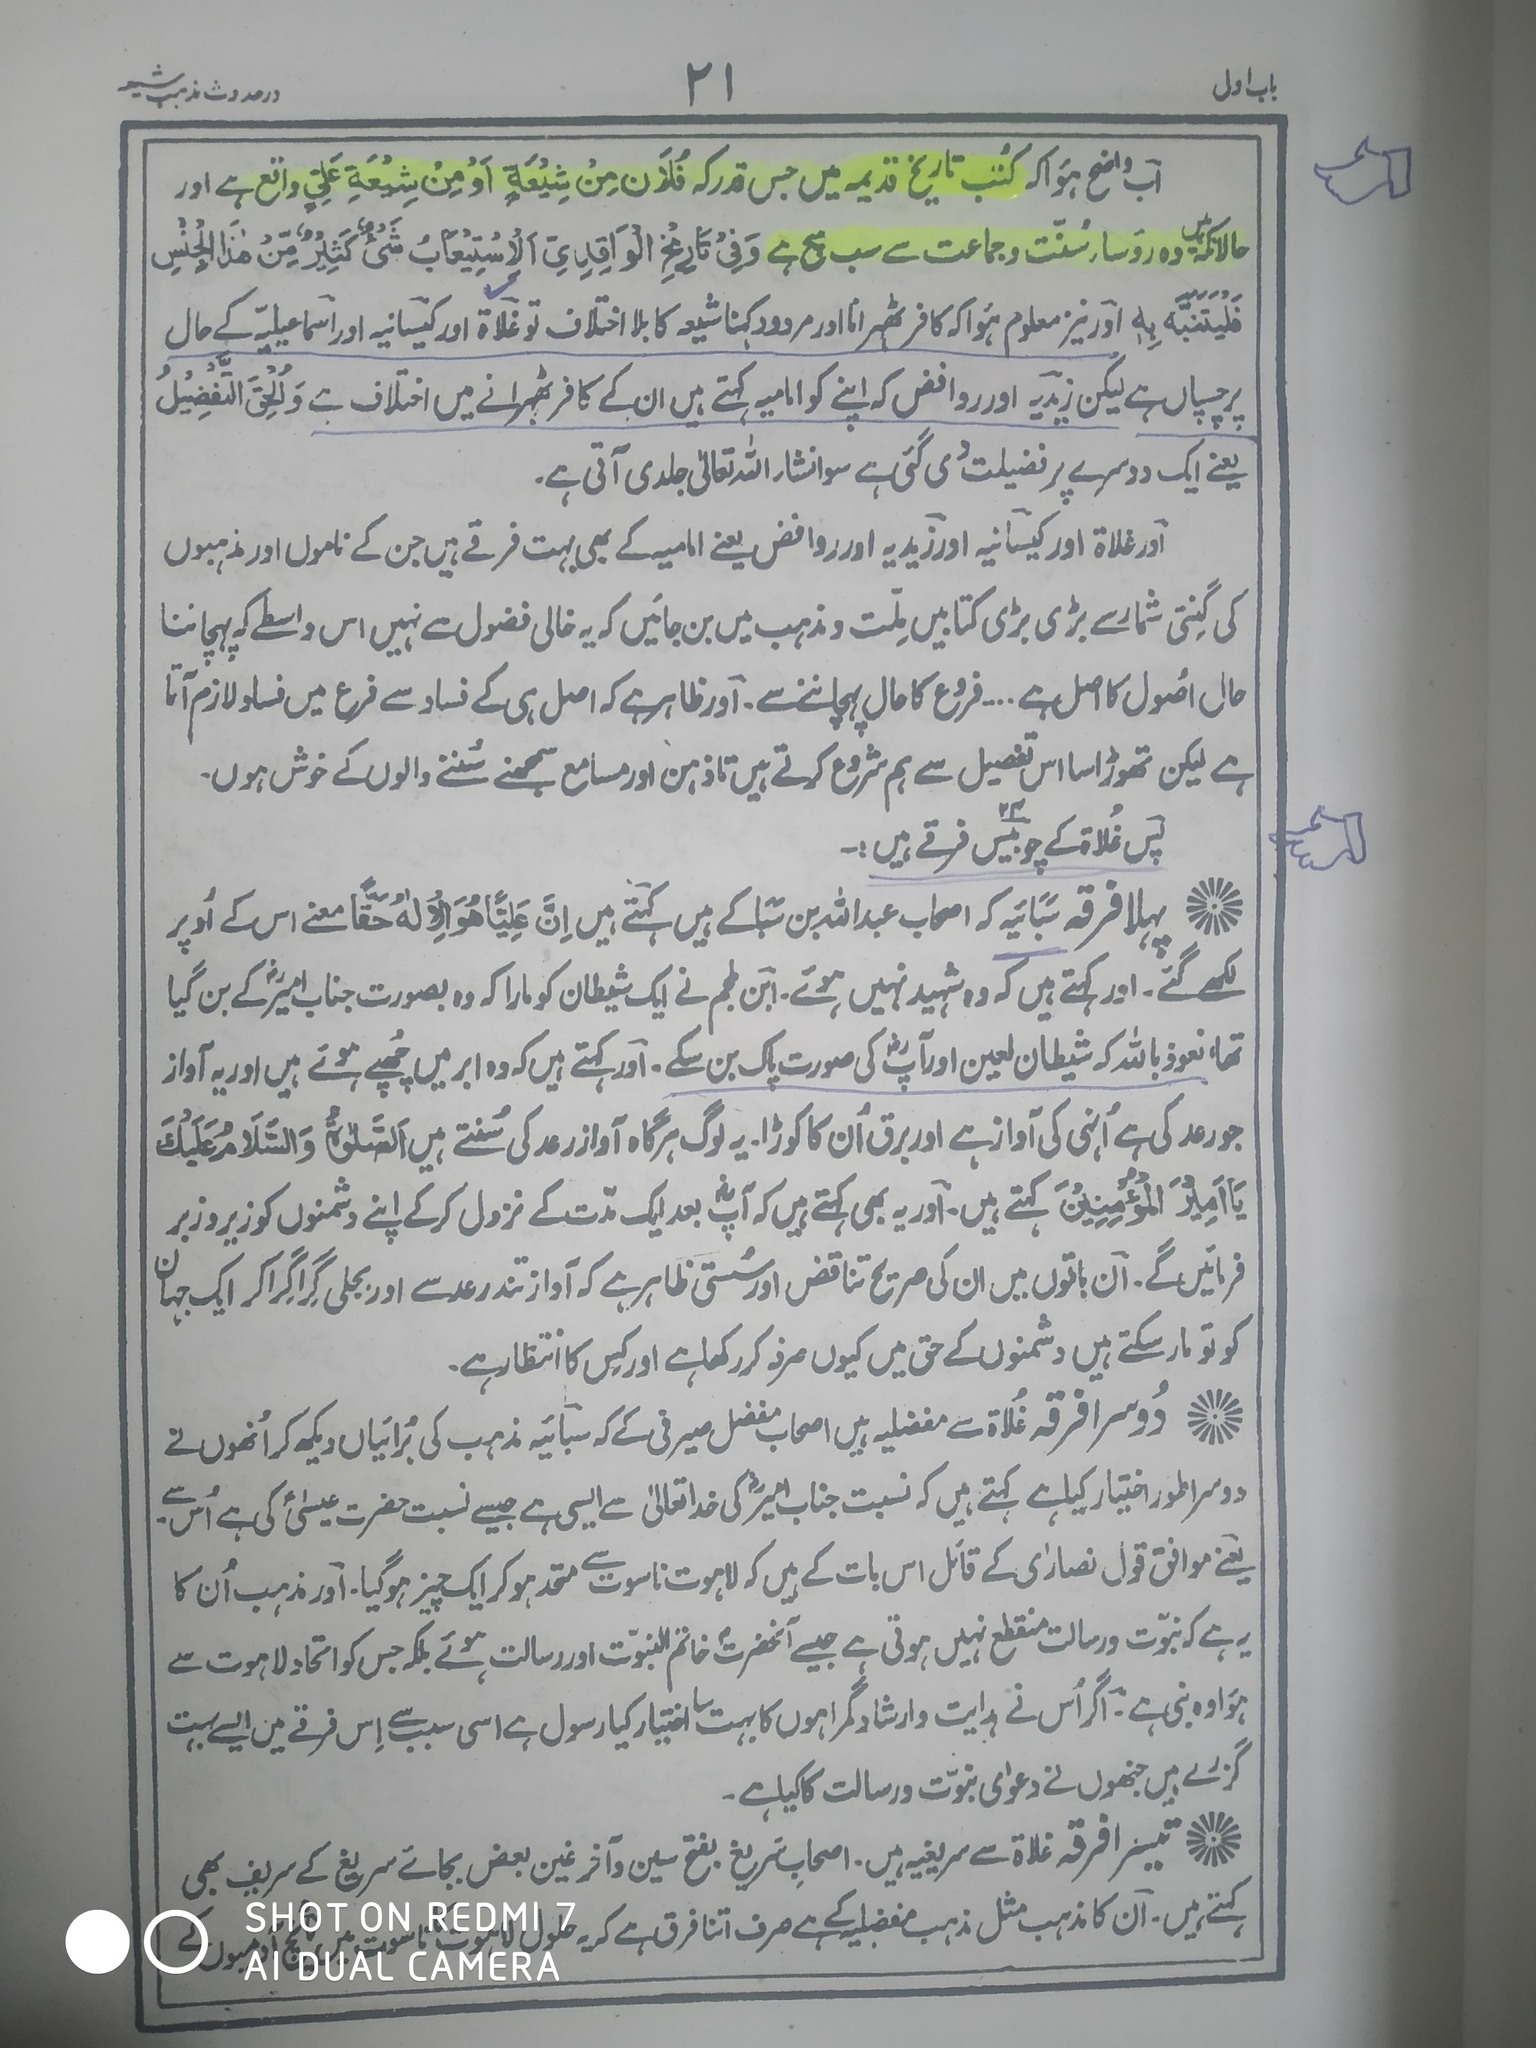 باب اول
۲۱
در حدوث مذہب شیعہ
اب واضح ہوا کہ کتب تاریخ قدیمہ میں جس قدر کہ فُلَان مِنْ شِیْعَۃٍ اَوْ مِنْ شِیْعَۃِ عَلِیٍّ واقع ہے اور
حالانکہ ہیں وہ رؤسار سُنّت و جماعت سے سب سچ ہے وَفِیْ تَارِیْخِ الْوَاقِدِیِّ اَلْاِسْتِیْعَابُ شَیْءٌ کَثِیْرٌ مِّنْ ھٰذَا الْجِنْسِ
فَلْیَتَنَبَّہ بِہٖ اور نیز معلوم ہوا کہ کافر ٹھہرانا اور مردود کہنا شیعہ کا بلا اختلاف تو غلاۃ اور کیسانیہ اور اسماعیلیہ کے حال
پر چسپاں ہے لیکن زیدیہ اور روافض کہ اپنے کو امامیہ کہتے ہیں ان کے کافر ٹھہرانے میں اختلاف ہے وَلُحِقَ التَّفْضِیْلُ
یعنے ایک دوسرے پر فضیلت دی گئی ہے سو انشار اللہ تعالیٰ جلدی آتی ہے۔
اور غلاۃ اور کیسانیہ اور زیدیہ اور روافض یعنے امامیہ کے بھی بہت فرقے ہیں جن کے ناموں اور مذہبوں
کی گنتی شمار سے بڑی بڑی کتابیں ملّت و مذہب میں بن جائیں کہ یہ خالی فضول سے نہیں اس واسطے کہ پہچاننا
حال اصول کا اصل ہے .... فروع کا حال پہچاننے سے۔ اور ظاہر ہے کہ اصل ہی کے فساد سے فرع میں فساد لازم آتا
ہے لیکن تھوڑا سا اس تفصیل سے ہم شروع کرتے ہیں تا ذہن اور مسامع سمجھنے سُننے والوں کے خوش ہوں۔
پس غُلاۃ کے چوبیس ۲۴ فرقے ہیں :۔
پہلا فرقہ سَبَائیہ کہ اصحاب عبداللہ بن سَبا کے ہیں کہتے ہیں اِنَّ عَلِیًّا ھُوَ الْاِلٰہُ حَقًّا معنے اس کے اُوپر
لکھے گئے۔ اور کہتے ہیں کہ وہ شہید نہیں ہوئے۔ ابن ملجم نے ایک شیطان کو مارا کہ وہ بصورت جناب امیرؓ کے بن گیا
تھا، نعوذ باللہ کہ شیطان لعین اور آپؓ کی صورت پاک بن سکے۔ اور کہتے ہیں کہ وہ ابر میں چھُپے ہوئے ہیں اور یہ آواز
جو رعد کی ہے اُنہی کی آواز ہے اور برق اُن کا کوڑا۔ یہ لوگ ہر گاہ آواز رعد کی سُنتے ہیں اَلصَّلٰوۃُ وَالسَّلَامُ عَلَیْکَ
یَا اَمِیْرَ الْمُؤْمِنِیْنَ کہتے ہیں۔ اور یہ بھی کہتے ہیں کہ آپؓ بعد ایک مدّت کے نزول کر کے اپنے دشمنوں کو زیر و زبر
فرمائیں گے۔ ان باتوں میں ان کی صریح تناقض اور سُستی ظاہر ہے کہ آواز تند رعد سے اور بجلی گِرا گِرا کر ایک جہان
کو تو مار سکتے ہیں دشمنوں کے حق میں کیوں صرفہ کر رکھا ہے اور کِس کا انتظار ہے۔
دُوسرا فرقہ غُلاۃ سے مفضلیہ ہیں اصحاب مفضل صیرفی کے کہ سَبائیہ مذہب کی بُرائیاں دیکھ کر اُنھوں نے
دوسرا طور اختیار کیا ہے کہتے ہیں کہ نسبت جناب امیرؓ کی خدا تعالیٰ سے ایسی ہے جیسے نسبت حضرت عیسیٰؑ کی ہے اُس سے۔
یعنے موافق قول نصاریٰ کے قائل اس بات کے ہیں کہ لاہوت ناسوت سے متحد ہو کر ایک چیز ہو گیا۔ اور مذہب اُن کا
یہ ہے کہ نبوّت و رسالت منقطع نہیں ہوتی ہے جیسے آنحضرتؐ خاتم النبوّت اور رسالت ہوئے بلکہ جس کو اتحاد لاہوت سے
ہوا وہ نبی ہے۔ اگر اُس نے ہدایت و ارشاد گمراہوں کا بہت سا اختیار کیا رسول ہے اسی سبب سے اِس فرقے میں ایسے بہت
گزرے ہیں جنھوں نے دعوای نبوّت و رسالت کا کیا ہے۔
تیسرا فرقہ غلاۃ سے سریغیہ ہیں۔ اصحابِ سَریغ بفتح سین و آخر غین بعض بجائے سریغ کے سریف بھی
کہتے ہیں۔ ان کا مذہب مثل مذہب مفضلیہ کے ہے صرف اتنا فرق ہے کہ یہ حلول لاہوت ناسوت میں پانچ آدمیوں کے
SHOT ON REDMI 7
AI DUAL CAMERA